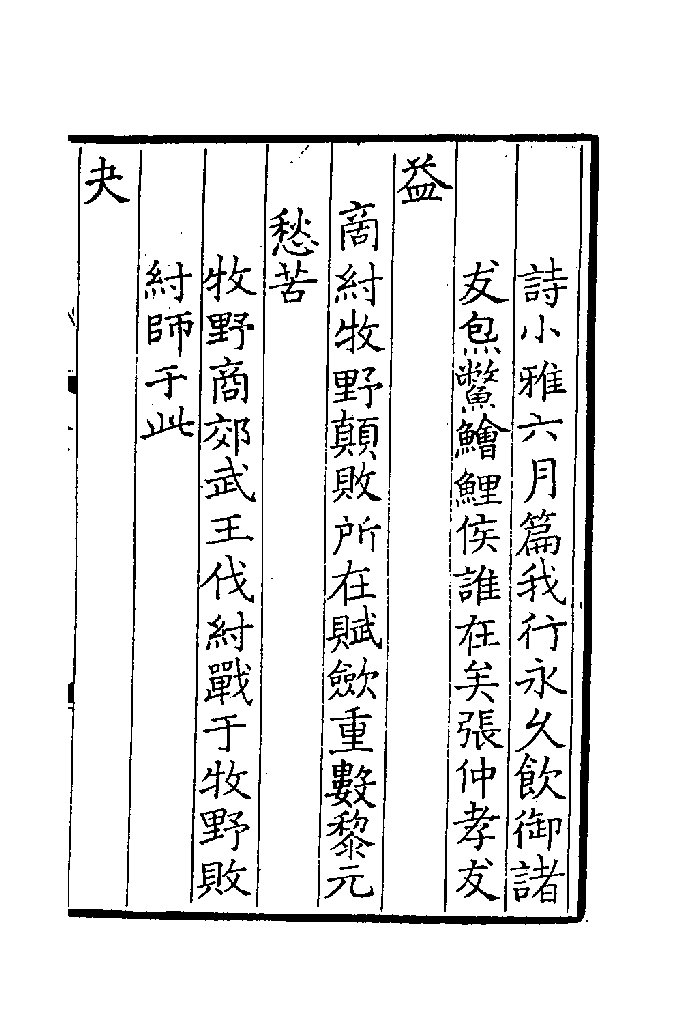 詩小雅六月篇我行永久飲御諸
友炰鱉鱠鯉侯誰在矣張仲孝友
益
商紂牧野顛敗所在賦歛重數黎元
愁苦
牧野商郊武王伐紂戰于牧野敗
紂師于此
夬